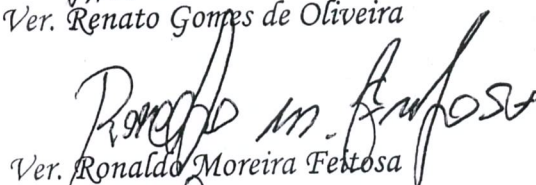 Ver. Renato Gomes de Oliveira
Ronaldo M. Feitosa
Ver. Ronaldo Moreira Feitosa